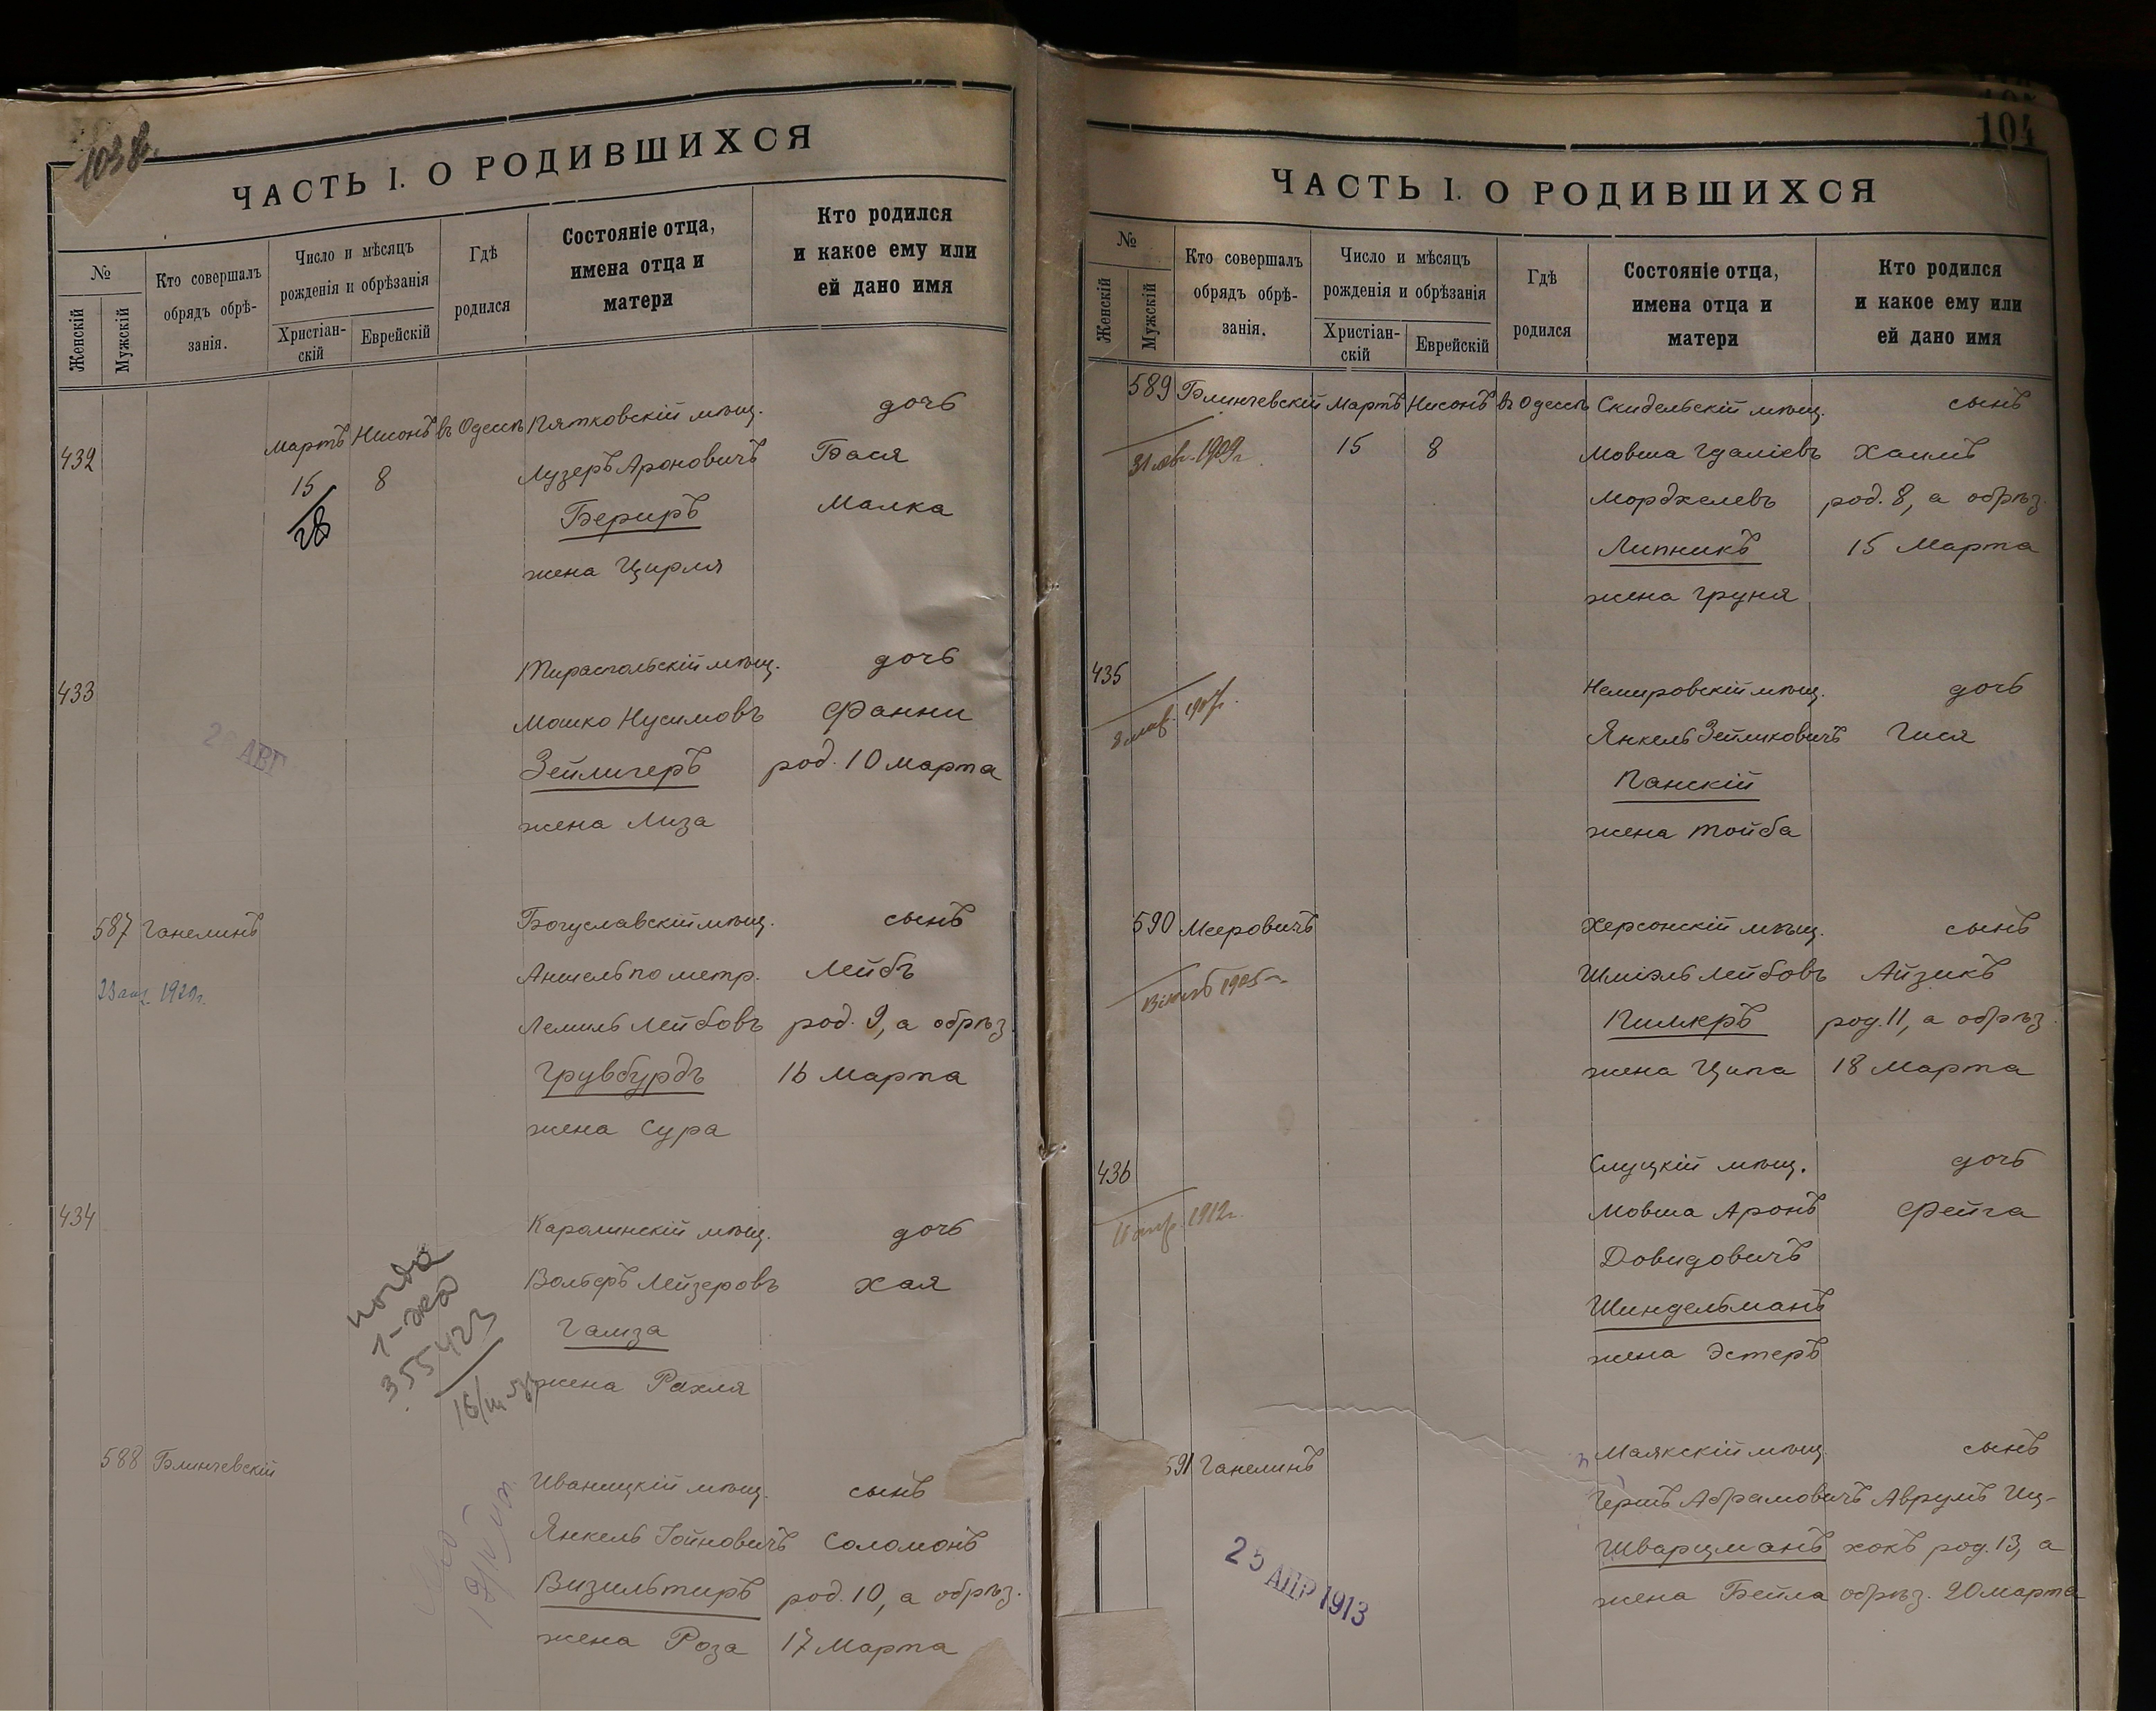 103 об.
ЧАСТЬ I. О РОДИВШИХСЯ
№
Женскій
Мужскій
Кто совершалъ
обрядъ обрѣ-
занія.
Число и мѣсяцъ
рожденія и обрѣзанія
Христіан-
скій
Еврейскій
Гдѣ
родился
Состояніе отца,
имена отца и
матери
Кто родился
и какое ему или
ей дано имя
432
Мартъ Нисонъ въ Одессѣ Пятковскій мѣщ. дочь
15 8 Лузеръ Ароновичъ Бася
28 Бериръ Малка
жена Цирля
433 Тираспольскій мѣщ. дочь
Мошко Нусимовъ Фанни
АВГ
Зейлигеръ род. 10 марта
жена Лиза
587 Ганелинъ Богуславскій мѣщ. сынъ
Аншель по метр. Лейбъ
Лемиль Лейбовъ род. 9, а обрѣз.
Грувбурдъ 16 Марта
жена Сура
434 Каролинскій мѣщ. дочь
Вольфъ Лейзеровъ Хая
Гамза
жена Рахля
355423
588 Блинчевскій Иваницкій мѣщ. сынъ
Янкель Гойновичъ Соломонъ
Визильтиръ род. 10, а обрѣз.
жена Роза 17 Марта
104
ЧАСТЬ I. О РОДИВШИХСЯ
№
Женскій
Мужскій
Кто совершалъ
обрядъ обрѣ-
занія.
Число и мѣсяцъ
рожденія и обрѣзанія
Христіан-
скій
Еврейскій
Гдѣ
родился
Состояніе отца,
имена отца и
матери
Кто родился
и какое ему или
ей дано имя
589 Блинчевскій Мартъ Нисонъ въ Одессѣ Скидельскій мѣщ. сынъ
1909 г. 15 8 Мовша Гдаліевъ Хаимъ
Морджелевъ род. 8, а обрѣз.
Липникъ 15 Марта
жена Груня
435 Немировскій мѣщ. дочь
Янкель Зейликовичъ Гися
Панскій
жена Тойба
590 Мееровичъ Херсонскій мѣщ. сынъ
1905 Шміэль Лейбовъ Айзикъ
Пилкеръ род. 11, а обрѣз.
жена Ципа 18 Марта
436 Слуцкій мѣщ. дочь
1912 г. Мовша Аронъ Фейга
Довидовичъ
Шиндельманъ
жена Эстеръ
591 Ганелинъ Маякскій мѣщ. сынъ
Гершъ Абрамовичъ Аврумъ Иц-
Шварцманъ хокъ род. 13, а
жена Бейла обрѣз. 20 марта
25 АПР 1913